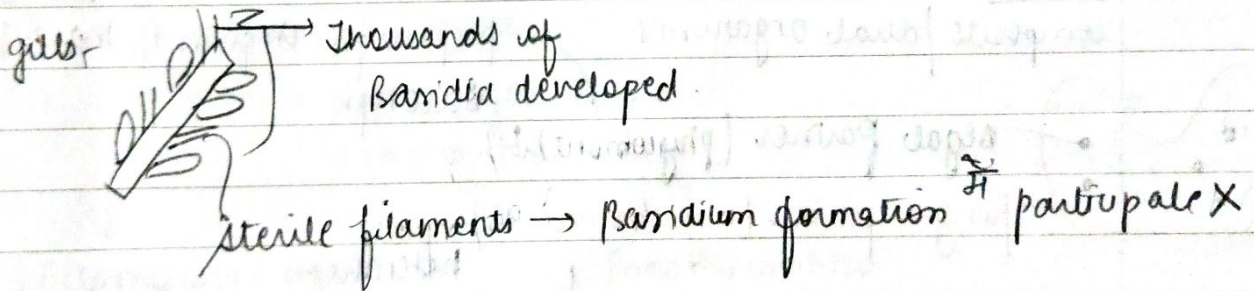 gills:-
→ Thousands of
Basidia developed.
sterile filaments → Basidium formation में participate X